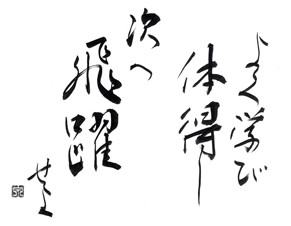 よく学び
体得し
次へ
飛躍